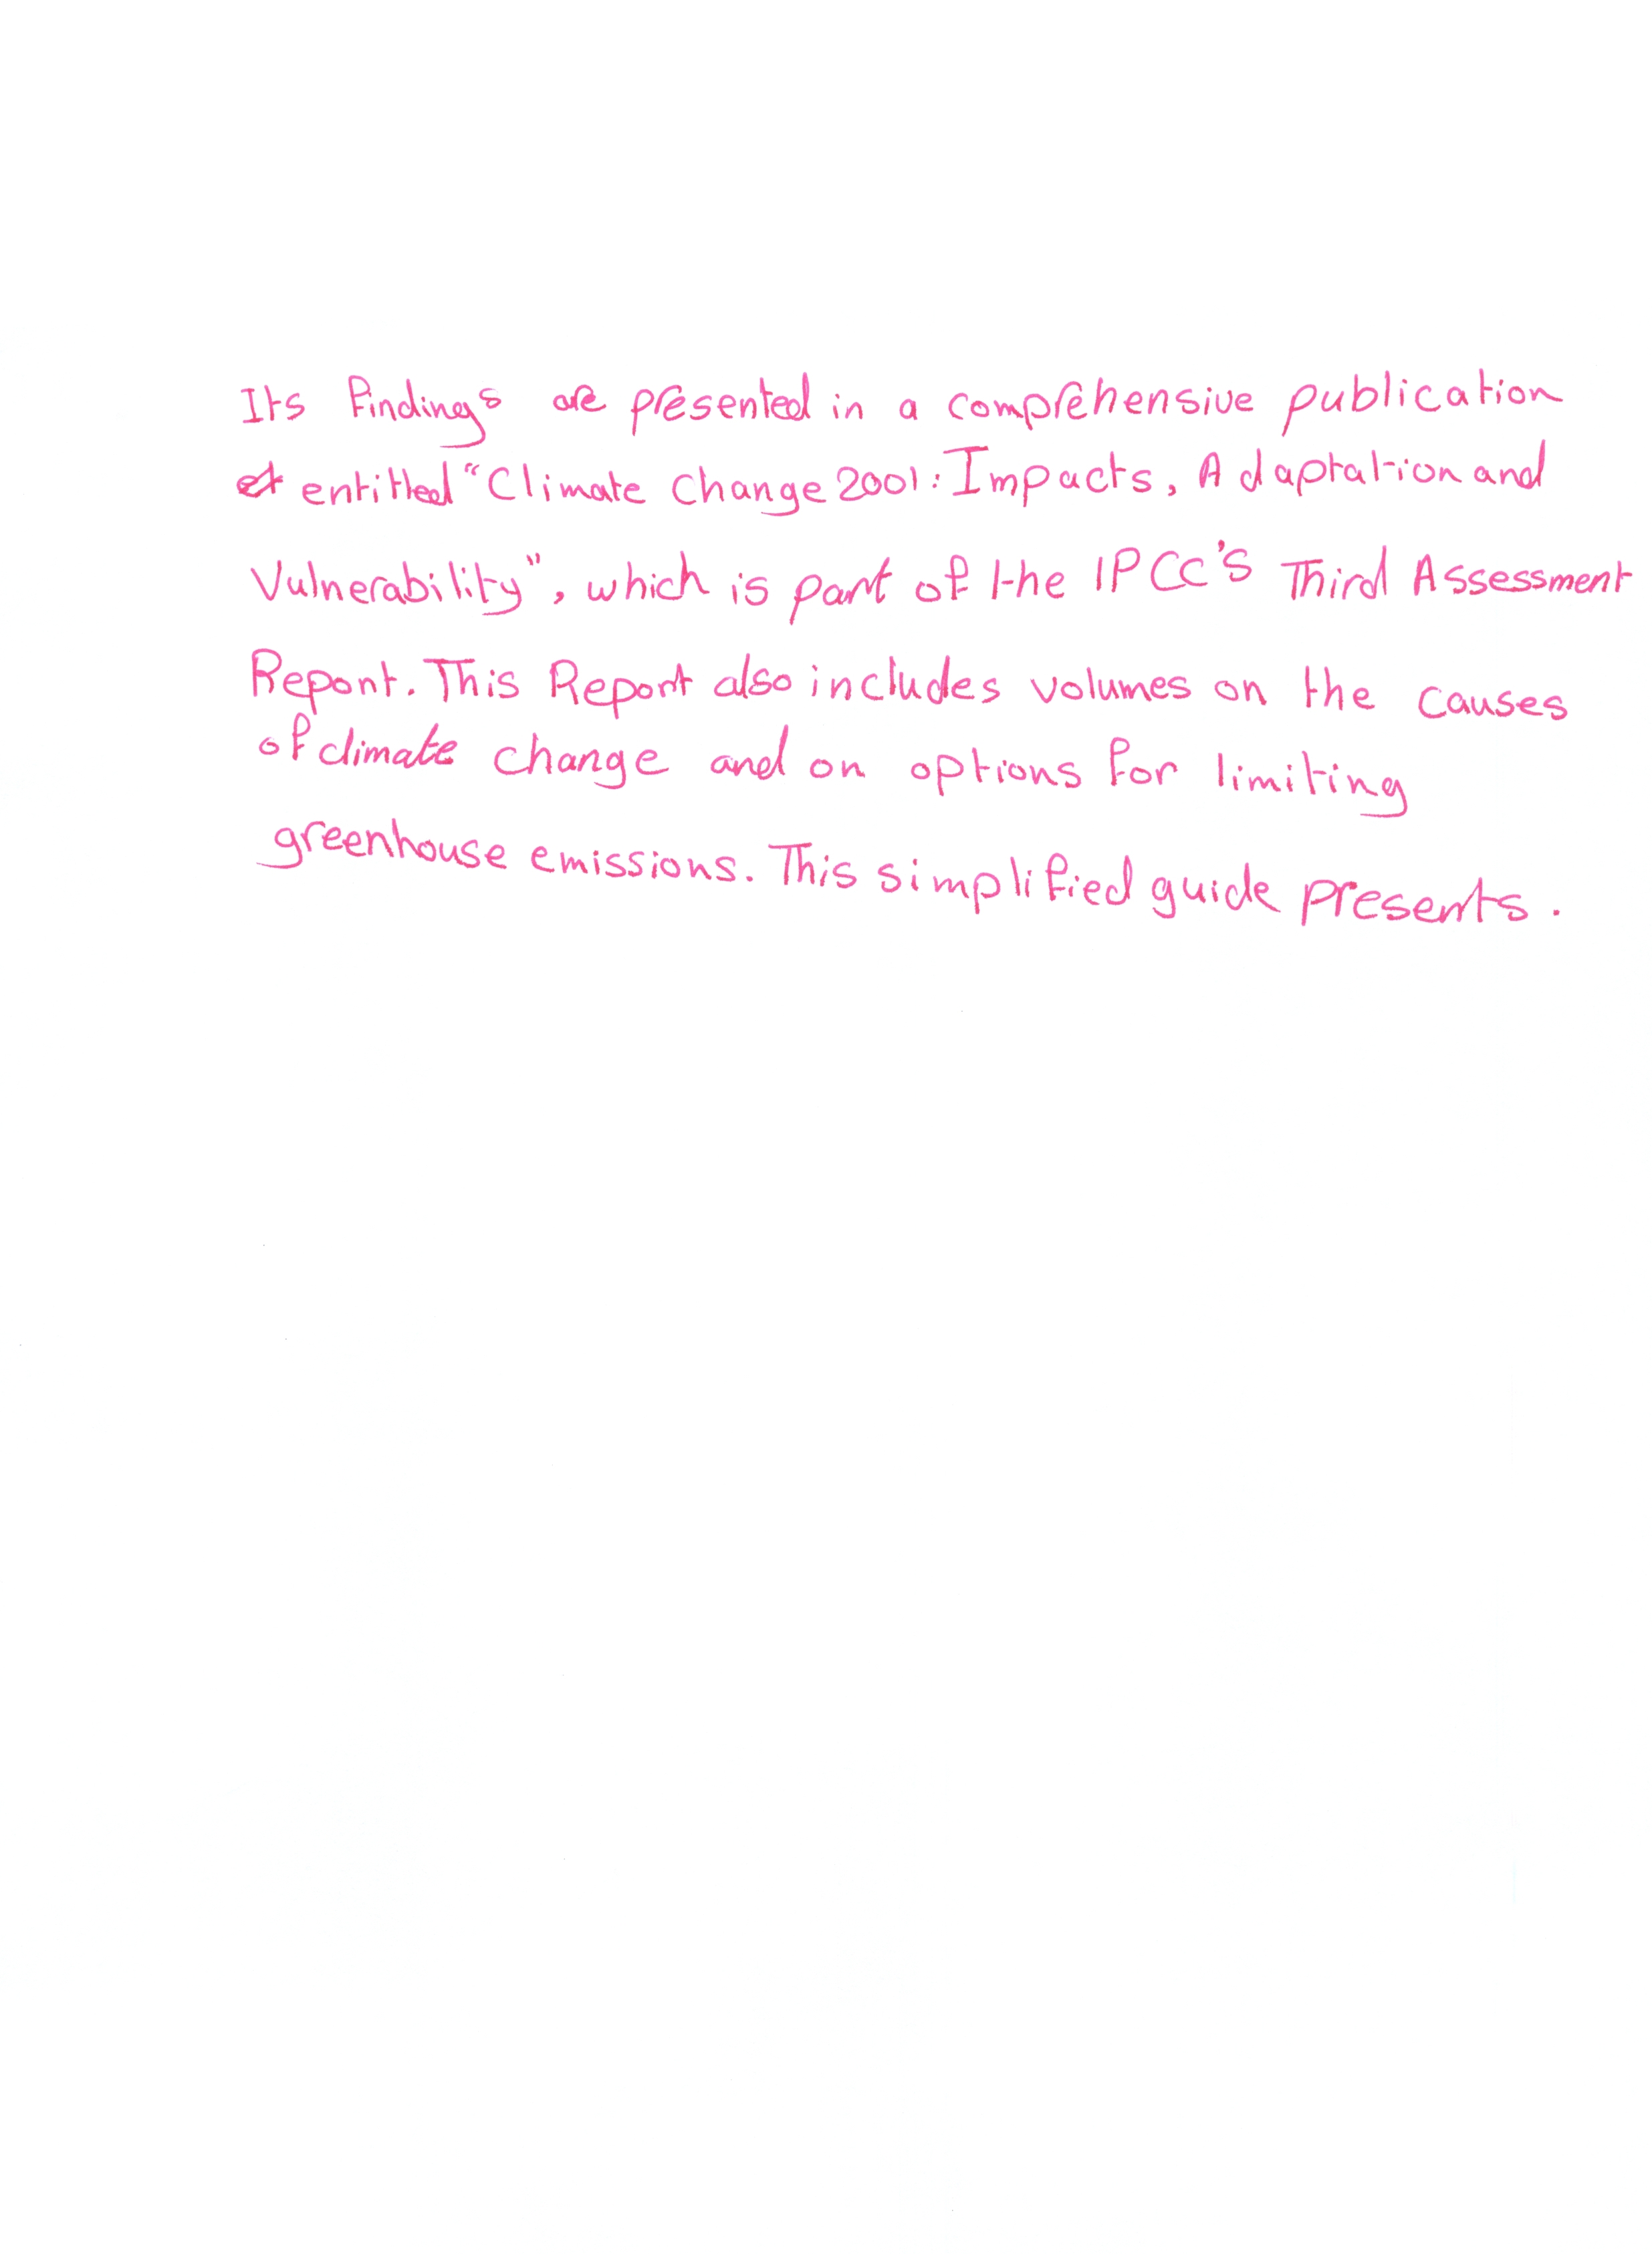 Its findings are presented in a comprehensive publication
entitled "Climate Change 2001: Impacts, Adaptation and
Vulnerability", which is part of the IPCC's Third Assessment
Report. This Report also includes volumes on the causes
of climate change and on options for limiting
greenhouse emissions. This simplified guide presents.